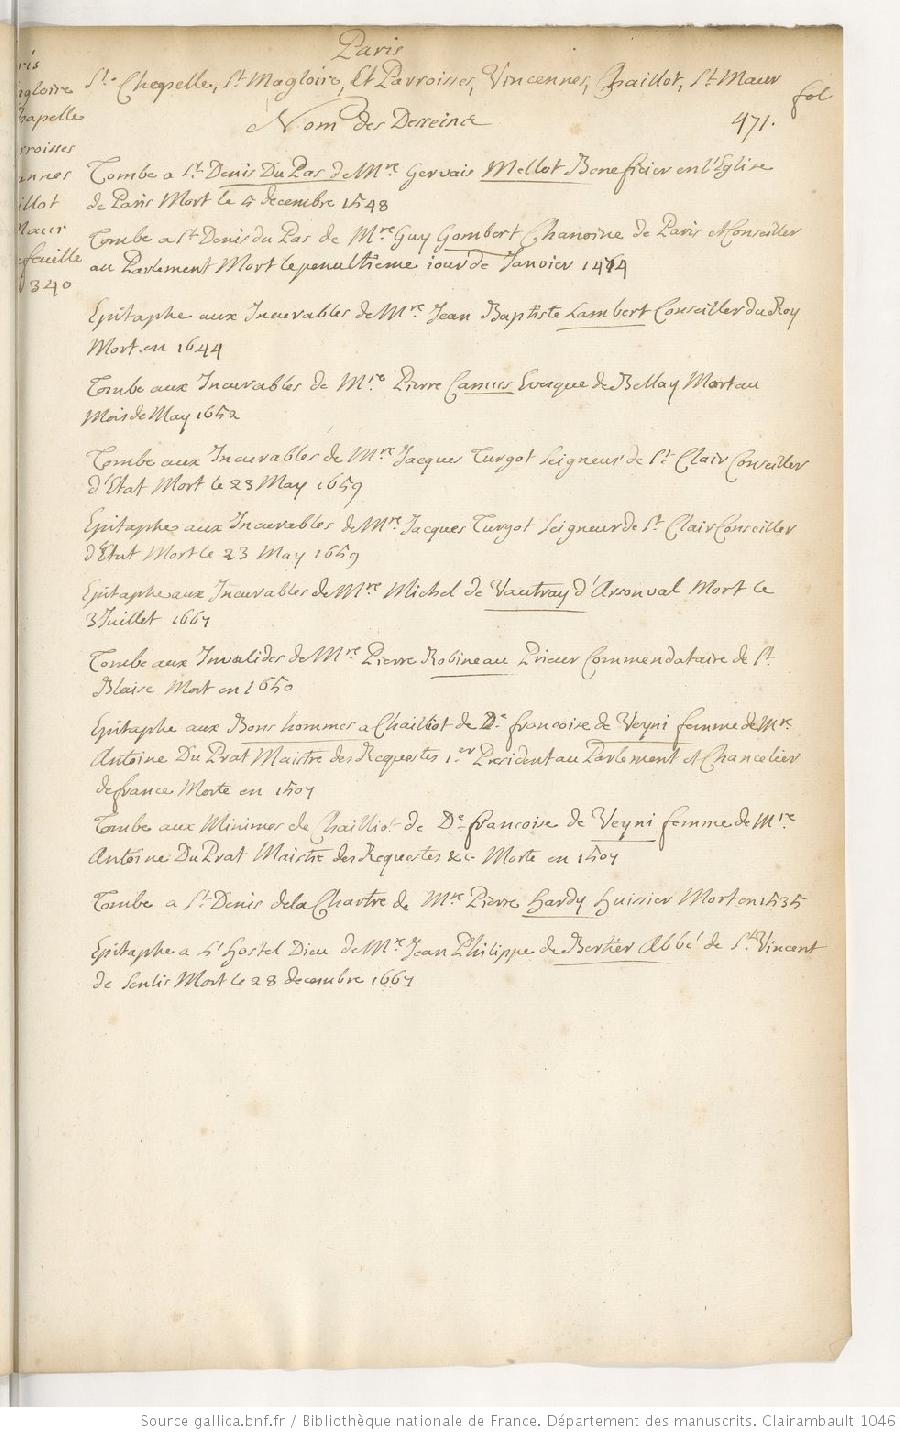 Paris
Ste. Chapelle, St Magloire, Et Parroisses, Vincennes, Chaillot, St Maur
fol
Nom des Desseins 471.
Tombe a St Denis Du Pas de Mre Gervais Mellot Beneficier en l'Eglise
de Paris Mort le 4 decembre 1548
Tombe a St Denis du Pas de Mre Guy Gombert Chanoine de Paris et Conseiller
au Parlement Mort le penultieme iour de Janvier
Epitaphe aux Incurables de Mre Jean Baptiste Lambert Conseiller du Roy
Mort en 1644
Tombe aux Incurables de Mre Pierre Camus Evesque de Bellay Mort au
Mois de May 1652
Tombe aux Incurables de Mre Jacques Turgot Seigneur de St Clair Conseiller
d'Etat Mort le 23 May 1659
Epitaphe aux Incurables de Mre Jacques Turgot Seigneur de St Clair Conseiller
d'Etat Mort le 23 May 1659
Epitaphe aux Incurables de Mre Michel de Vautray d'Arsonval Mort le
3 Juillet 1667
Tombe aux Invalides de Mre Pierre Robineau Prieur Commendataire de St
Blaise Mort en 1650
Epitaphe aux Bons hommes a Chailliot de De francoise de Veyni femme de Mre
Antoine Du Prat Maistre des Requestes 1er President au Parlement et Chancelier
de france Morte en 1507
Tombe aux Minimes de Chailliot de De francoise de Veyni femme de Mre
Antoine Du Prat Maistre des Requestes &c Morte en 1507
Tombe a St Denis de la Chartre de Mre Pierre Hardy Huissier Mort en 1535
Epitaphe a l'Hostel Dieu de Mre Jean Philippe de Bertier Abbé de St Vincent
de Senlis Mort le 28 decembre 1667
ris
gloire
hapelle
roisses
nnes
illot
Maur
feuille
340
Source gallica.bnf.fr / Bibliothèque nationale de France. Département des manuscrits. Clairambault 1046